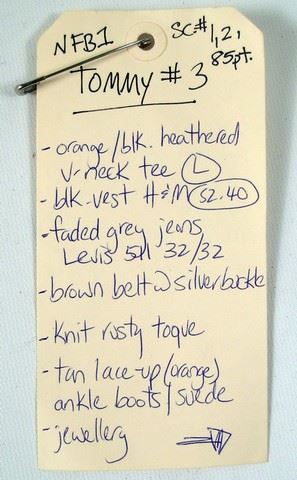 NFB1
SC# 1, 2,
85pt.
TOMMY # 3
- orange/blk. heathered
v-neck tee (L)
- blk. vest H&M SZ. 40
- faded grey jeans
Levis 511 32/32
- brown belt w silver buckle
- knit rusty toque
- tan lace-up (orange)
ankle boots / suede
- jewellery